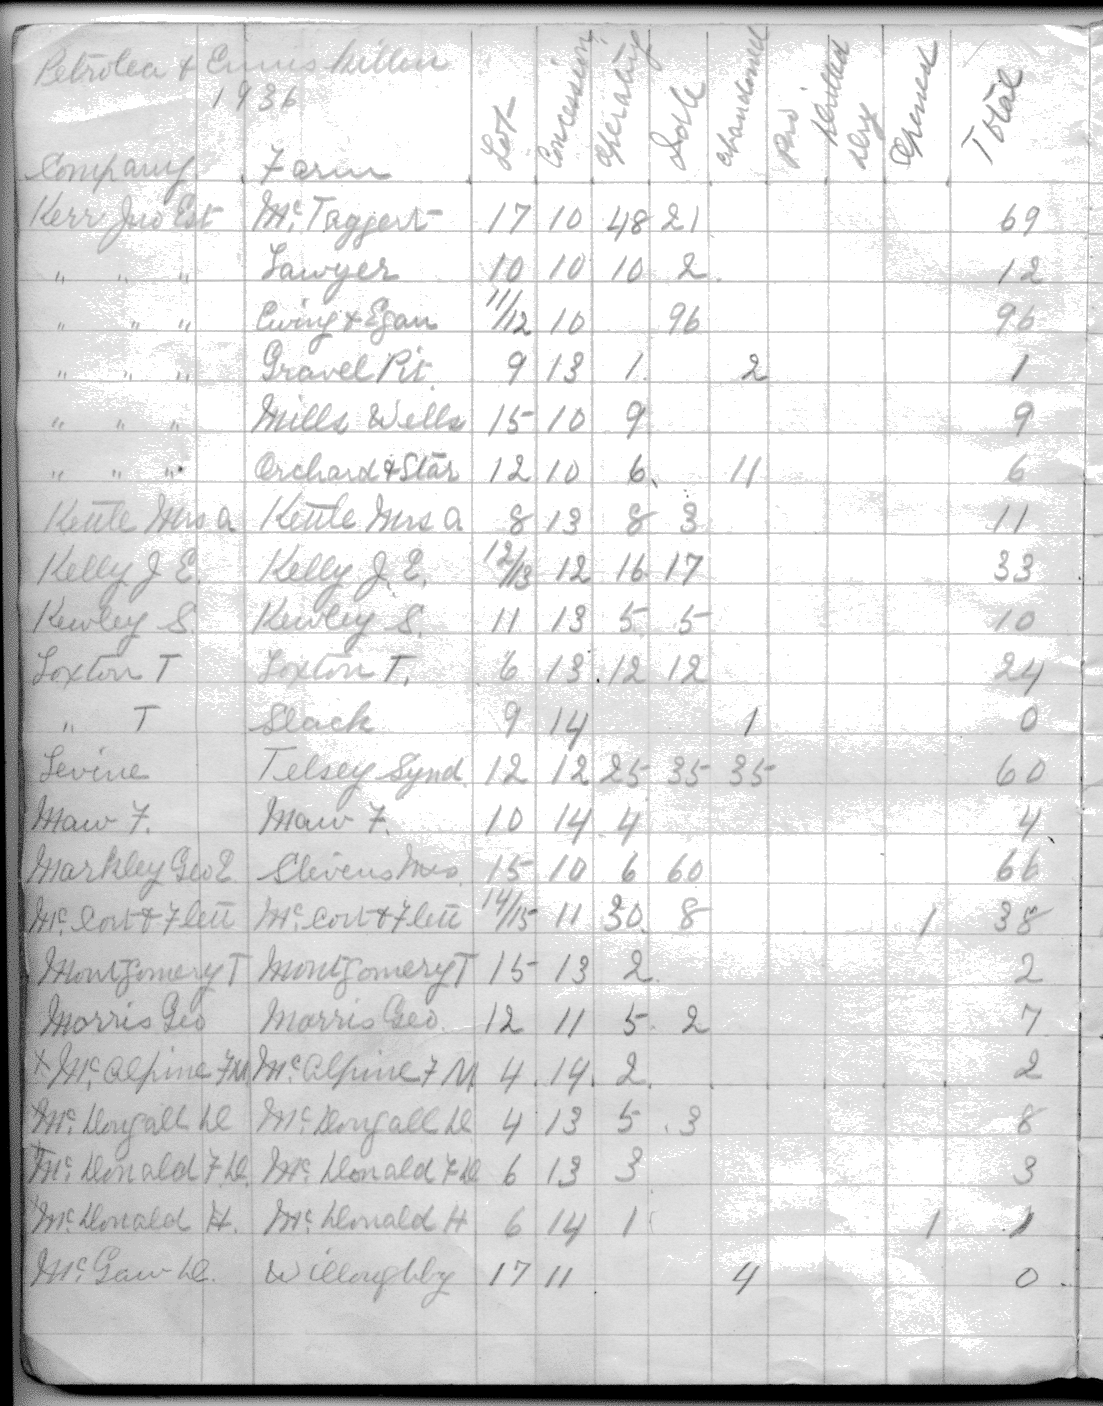 Petrolea & Enniskillen
1936
Company Farm Lot Concession Operating Idle Abandoned Drilled Dry Opened Total
Kerr Jno Est Mc.Taggert 17 10 48 21 69
" " " Sawyer 10 10 10 2 12
" " " Ewing & Egan 11/12 10 96 96
" " " Gravel Pit 9 13 1 2 1
" " " Mills Wells 15 10 9 9
" " " Orchard & Star 12 10 6 11 6
Kettle Mrs A Kettle Mrs A 8 13 8 3 11
Kelly J E. Kelly J. E. 12/13 12 16 17 33
Kewley S Kewley S. 11 13 5 5 10
Loxton T Loxton T. 6 13 12 12 24
" T Slack 9 14 1 0
Levine Telsey Synd. 12 12 25 35 35 60
Maw F. Maw F. 10 14 4 4
Markley Geo E Stevens Mrs 15 10 6 60 66
Mc.Cort & Flett Mc.Cort & Flett 14/15 11 30 8 1 38
Montgomery T Montgomery T 15 13 2 2
Morris Geo Morris Geo. 12 11 5 2 7
x Mc.Alpine F M Mc.Alpine F M 4 14 2 2
Mc.Dougall D Mc.Dougall D. 4 13 5 3 8
Mc.Donald F.D. Mc.Donald F D 6 13 3 3
Mc.Donald H. Mc.Donald H 6 14 1 1 1
Mc.Gaw D. Willoughby 17 11 4 0